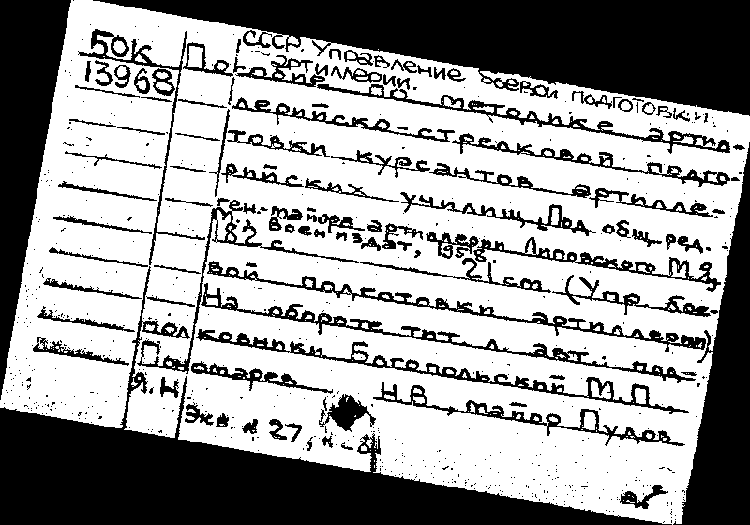 50К
13968
СССР. Управление боевой подготовки
артиллерии.
Пособие по методике артил-
лерийско-стрелковой подго-
товки курсантов артилле-
рийских училищ. Под общ. ред.
ген.-майора артиллерии Липовского М.Я.
М., Воениздат, 1958.
182 с. 21 cm (Упр. бое-
вой подготовки артиллерии)
На обороте тит. л. авт.: под-
полковники Богопольский М.П.,
Пономарев Н.В., майор Пудов
Я.Н
Экз № 27,